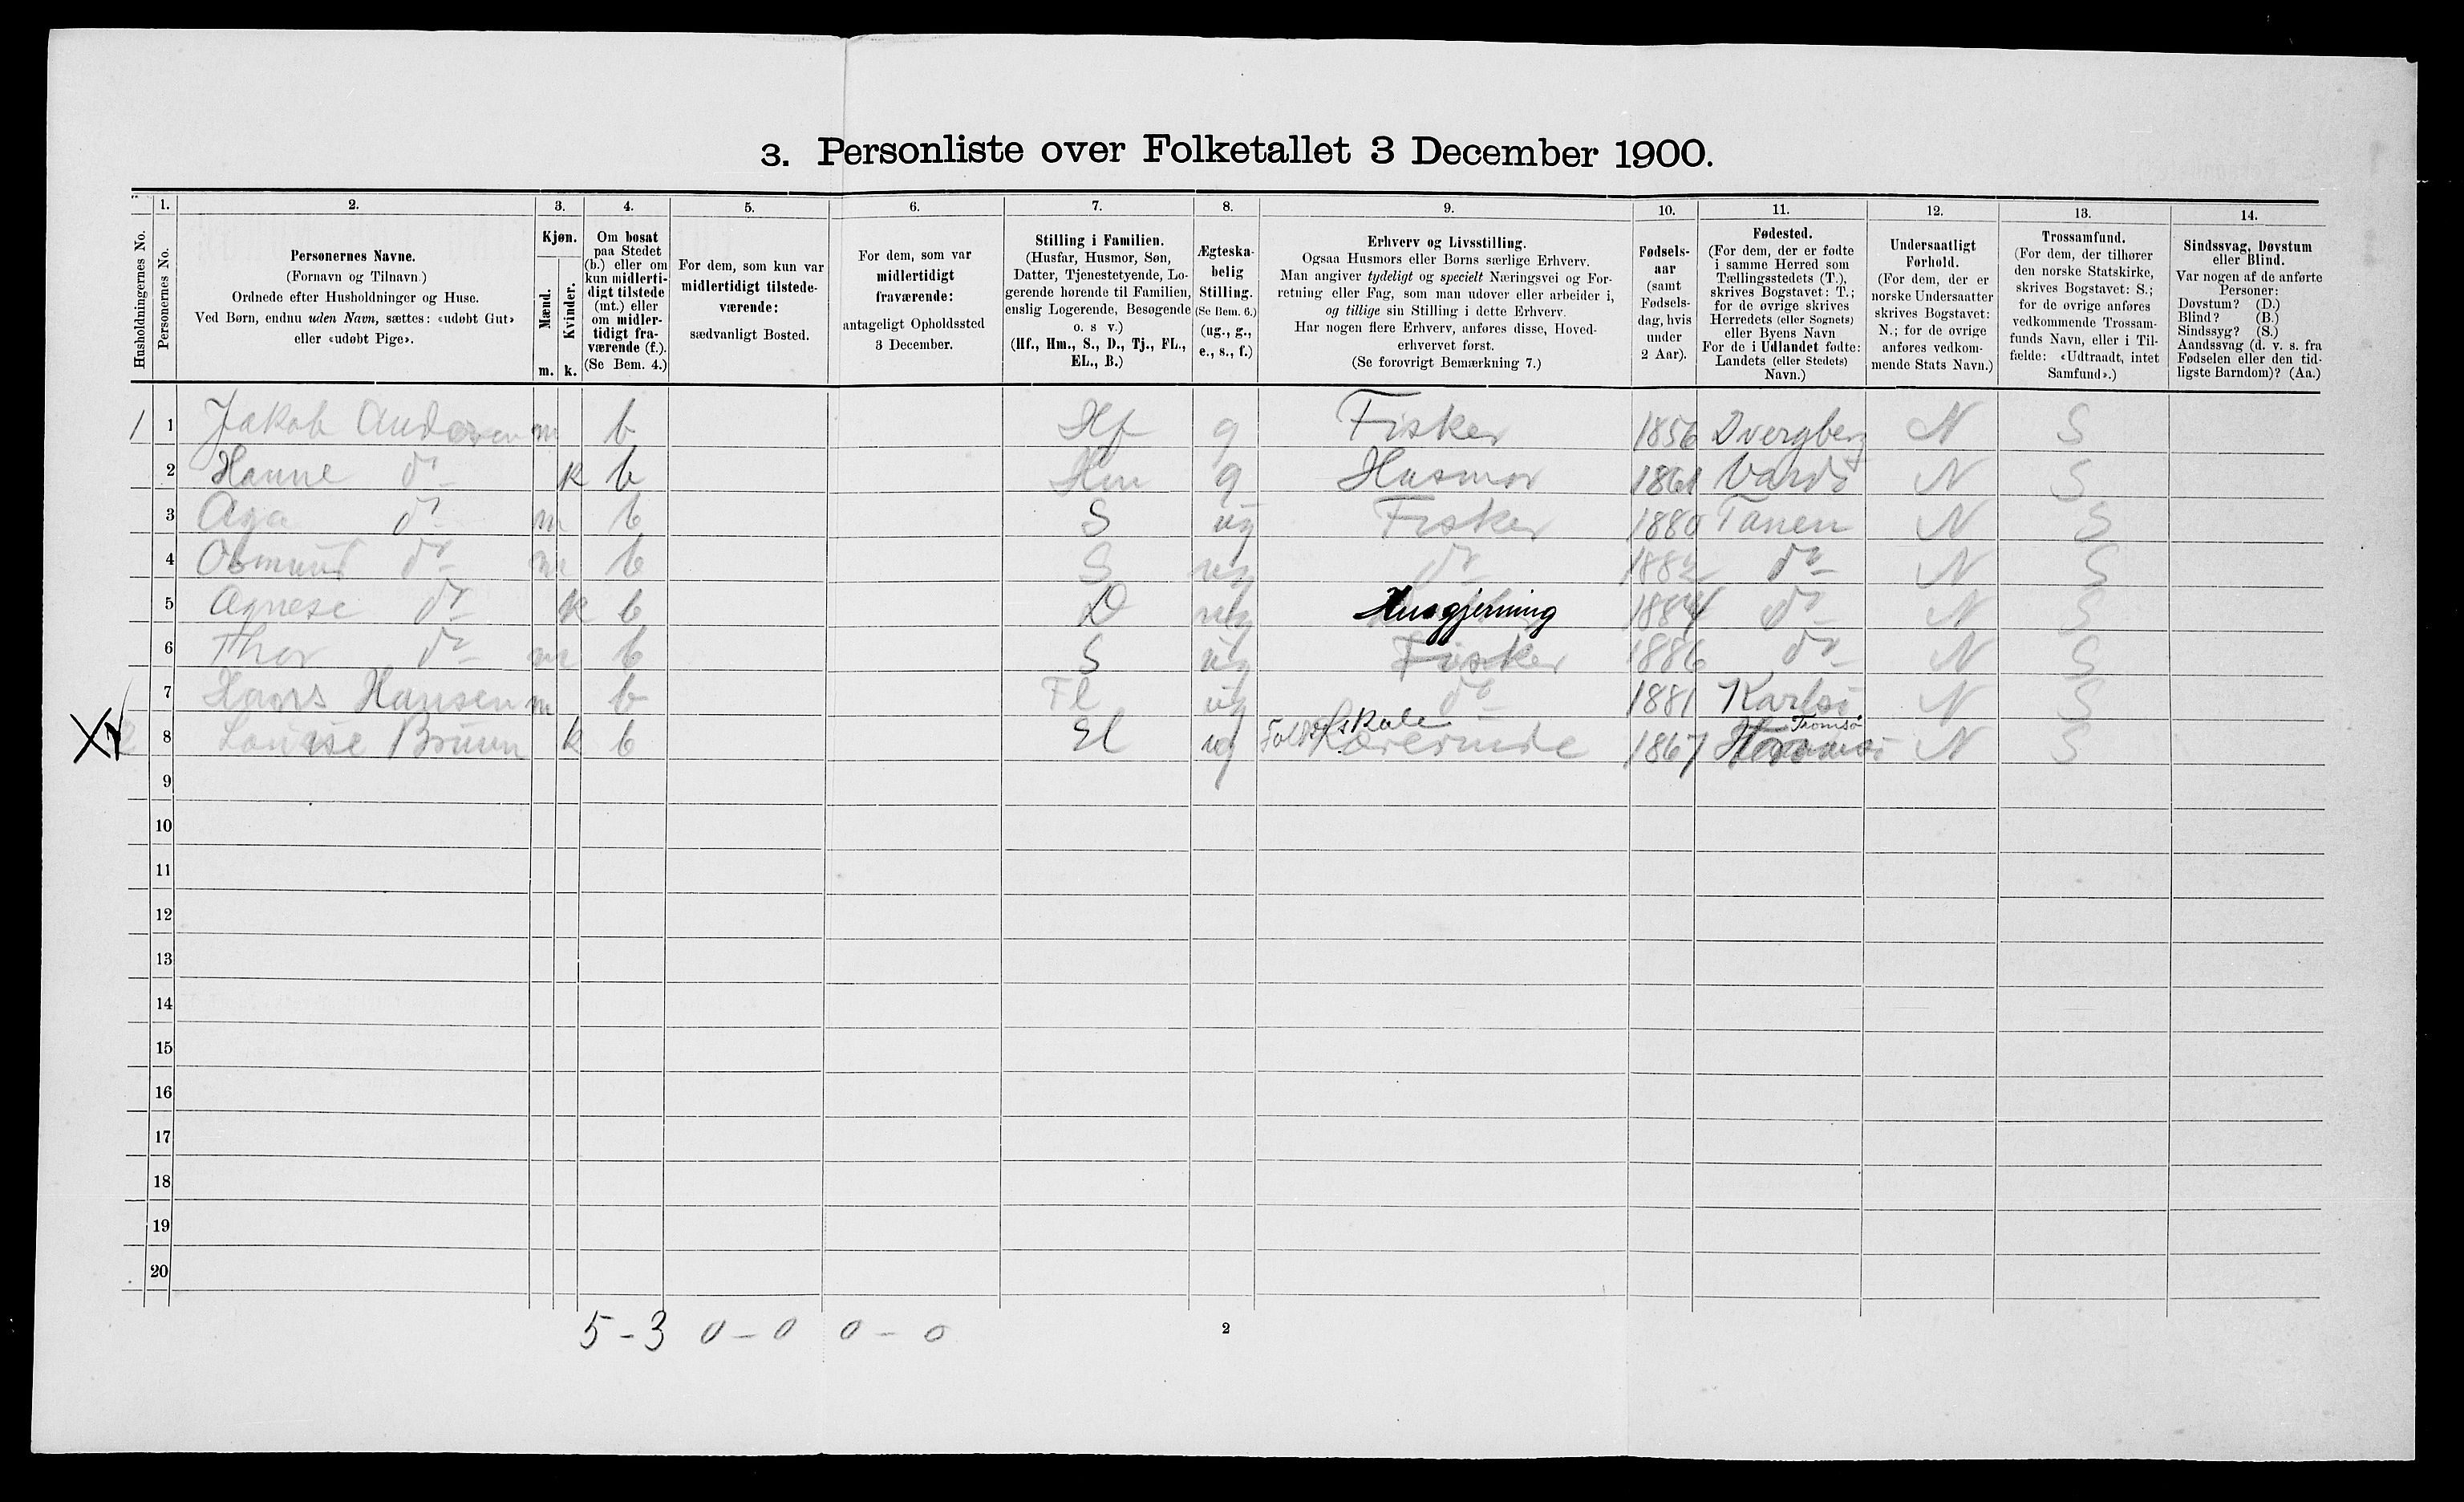 3. Personliste over Folketallet 3 December 1900.
Husholdningernes No.
1.
Personernes No.
2.
Personernes Navne.
(Fornavn og Tilnavn)
Ordnede efter Husholdninger og Huse.
Ved Børn, endnu uden Navn, sættes: «udøbt Gut»
eller «udøbt Pige».
3.
Kjøn.
Mænd.
Kvinder.
m. k.
4.
Om bosat
paa Stedet
(b.) eller om
kun midlerti-
digt tilstede
(mt.) eller
om midler-
tidigt fra-
værende (f.).
(Se Bem. 4.)
5.
For dem, som kun var
midlertidigt tilstede-
værende:
sædvanligt Bosted.
6.
For dem, som var
midlertidigt
fraværende:
antageligt Opholdssted
3 December.
7.
Stilling i Familien.
(Husfar, Husmor, Søn,
Datter, Tjenestetyende, Lo-
gerende hørende til Familien,
enslig Logerende, Besøgende
o. s v.)
(Hf., Hm., S., D., Tj., FL.,
EL., B.)
8.
Ægteska-
belig
Stilling.
(Se Bem. 6.)
(ug., g.,
e., s., f.)
9.
Erhverv og Livsstilling.
Ogsaa Husmors eller Børns særlige Erhverv.
Man angiver tydeligt og specielt Næringsvei og For-
retning eller Fag, som man udøver eller arbeider i,
og tillige sin Stilling i dette Erhverv.
Har nogen flere Erhverv, anføres disse, Hoved-
erhvervet først.
(Se forøvrigt Bemærkning 7.)
10.
Fødsels-
aar
(samt
Fødsels-
dag, hvis
under
2 Aar).
11.
Fødested.
(For dem, der er fødte
i samme Herred som
Tællingsstedets (T.),
skrives Bogstavet: T.;
for de øvrige skrives
Herredets (eller Sognets)
eller Byens Navn
For de i Udlandet fødte:
Landets (eller Stedets)
Navn.)
12.
Undersaatligt
Forhold.
(For dem, der er
norske Undersaatter
skrives Bogstavet:
N.; for de øvrige
anføres vedkom-
mende Stats Navn.)
13.
Trossamfund.
(For dem, der tilhører
den norske Statskirke,
skrives Bogstavet: S.;
for de øvrige anføres
vedkommende Trossam-
funds Navn, eller i Til-
fælde: «Udtraadt, intet
Samfund».)
14.
Sindssvag, Døvstum
eller Blind.
Var nogen af de anførte
Personer:
Døvstum? (D.)
Blind? (B.)
Sindssyg? (S.)
Aandssvag (d. v. s. fra
Fødselen eller den tid-
ligste Barndom)? (Aa.)
1 1 Jakob Andersen m b Hf g Fisker 1856 Dvergberg N S
2 Hanne do k b Hm g Husmor 1861 Vardö N S
3 Aga do m b S ug Fisker 1880 Tanen N S
4 Osmund do m b S ug do 1882 do N S
5 Agnese do k b D ug Husgjerning 1884 do N S
6 Thor do m b S ug Fisker 1886 do N S
7 Hans Hansen m b Fl ug do 1881 Karlsö N S
8 Louise Bruun k b El ug Folkeskole Lærerinde 1867 Tromsö N S
9
10
11
12
13
14
15
16
17
18
19
20
5-3 0-0 0-0
2